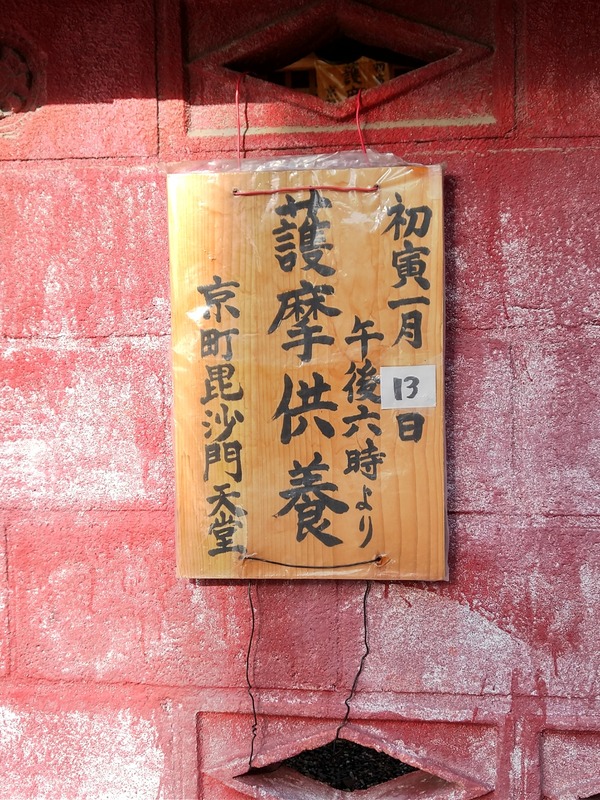 初寅一月13日
午後六時より
護摩供養
京町毘沙門天堂